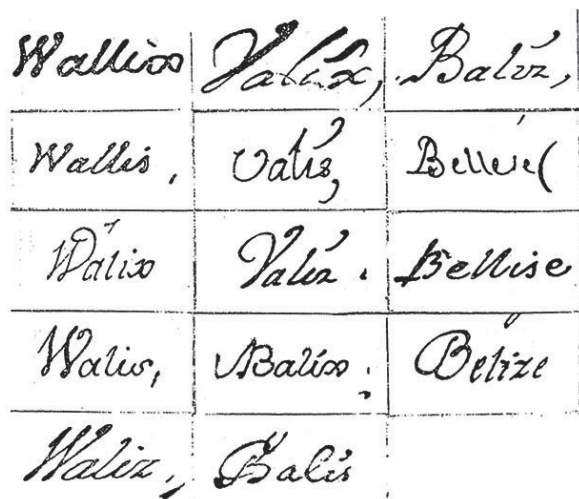 Wallix Valix, Baliz,
Wallis, Valis, Bellese
Walix Valiz. Bellise
Walis, Balix; Belize
Waliz, Balis